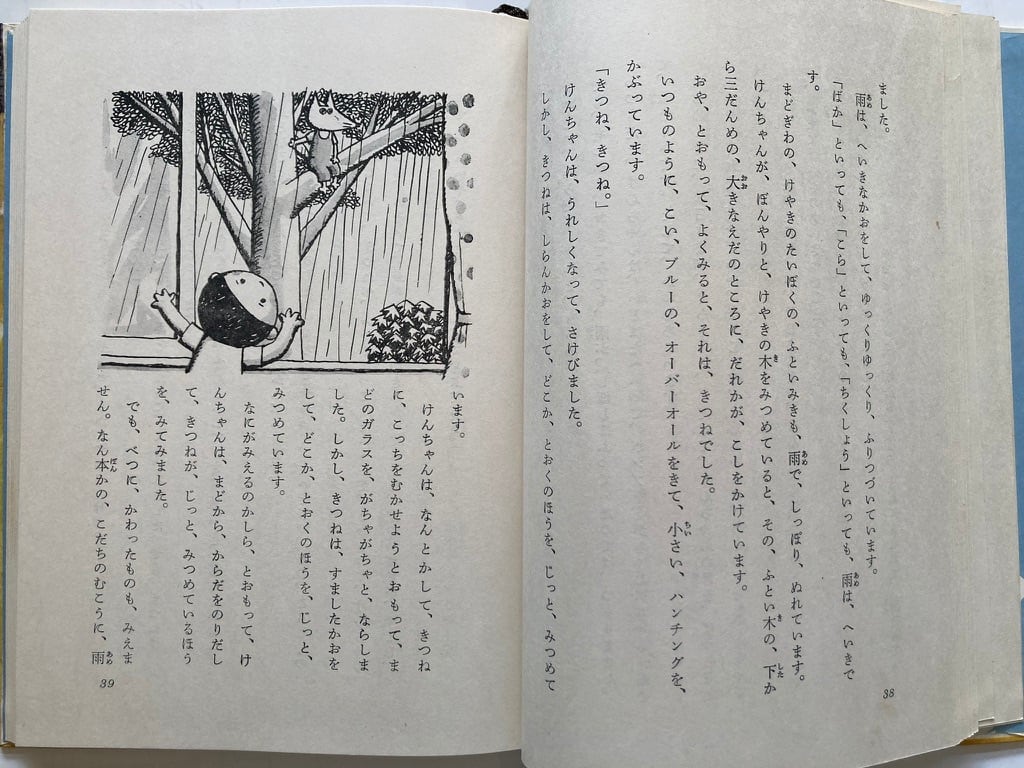 ました。
雨は、へいきなかおをして、ゆっくりゆっくり、ふりつづいています。
「ばか」といっても、「こら」といっても、「ちくしょう」といっても、雨は、へいきで
す。
まどぎわの、けやきのたいぼくの、ふといみきも、雨で、しっぽり、ぬれています。
けんちゃんが、ぼんやりと、けやきの木をみつめていると、その、ふとい木の、下か
ら三だんめの、大きなえだのところに、だれかが、こしをかけています。
おや、とおもって、よくみると、それは、きつねでした。
いつものように、こい、ブルーの、オーバーオールをきて、小さい、ハンチングを、
かぶっています。
「きつね、きつね。」
けんちゃんは、うれしくなって、さけびました。
しかし、きつねは、しらんかおをして、どこか、とおくのほうを、じっと、みつめて
38
います。
けんちゃんは、なんとかして、きつね
に、こっちをむかせようとおもって、ま
どのガラスを、がちゃがちゃと、ならしま
した。しかし、きつねは、すましたかおを
して、どこか、とおくのほうを、じっと、
みつめています。
なにがみえるのかしら、とおもって、け
んちゃんは、まどから、からだをのりだし
て、きつねが、じっと、みつめているほう
を、みてみました。
でも、べつに、かわったものも、みえま
せん。なん本かの、こだちのむこうに、雨
39